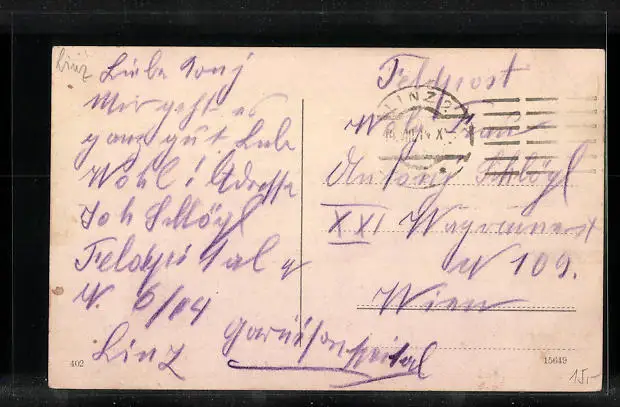 Linz
Liebe Tonj
Mir geht es
ganz gut. Lebe
Wohl! Adresse
Joh Schlögl
Feldspital
N. 6/04
Linz Garnisonspital
402
Feldpost
LINZ 2
Antonj Schlögl
XXI Wagramerst
N 109.
Wien
15649
15,-